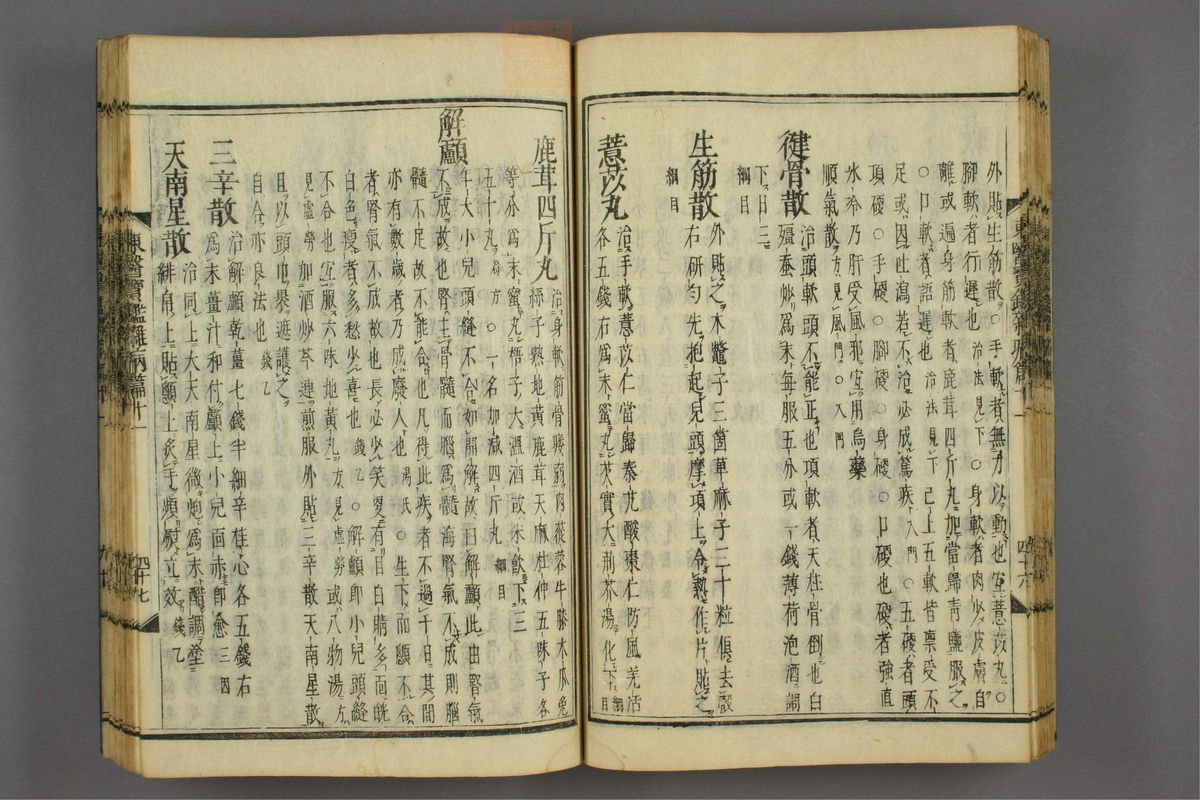 外貼生筋散○手軟者無力以動也宜薏苡丸○
脚軟者行遲也治法見下○身軟者肉少皮膚自
離或遍身筋軟者鹿茸四斤丸加當歸青鹽服之
○口軟者語遲也治法見下已上五軟皆禀受不
足或因吐瀉若不治必成篤疾入門○五硬者頭
項硬○手硬○脚硬○身硬○口硬也硬者強直
氷冷乃肝受風邪宜用烏藥
順氣散方見風門○入門
健骨散治頭軟頭不能正也項軟者天柱骨倒也白
殭蚕炒爲末每服五分或一錢薄荷泡酒調
下日三
綱目
生筋散外貼之木鱉子三箇萆麻子三十粒俱去殼
右研勻先抱起兒頭摩項上令熱作片貼之
綱目
薏苡丸治手軟薏苡仁當歸秦艽酸棗仁防風羌活
各五錢右爲末蜜丸芡實大荆芥湯化下綱目
東醫寶鑑雜病篇十一
四十六
鹿茸四斤丸治身軟筋骨痿弱肉蓯蓉牛膝木瓜兎
絲子熟地黃鹿茸天麻杜仲五味子各
等分爲末蜜丸梧子大溫酒或米飮下三
五十丸局方○一名加减四斤丸綱目
解顱年大小兒頭縫不合如開解故曰解顱此由腎氣
不成故也腎主骨髓而腦爲髓海腎氣不成則腦
髓不足故不能合也凡得此疾者不過千日其間
亦有數歲者乃成廢人也湯氏○生下而顱不合
者腎氣不成故也長必少笑更有目白睛多面㿠
白色瘦者多愁少喜也錢乙○解顱卽小兒頭縫
不合也宜服六味地黃丸方見虛勞或八物湯方
見虛勞加酒炒芩連煎服外貼三辛散天南星散
且以頭巾裹遮護之
自合亦良法也錢乙
三辛散治解顱乾薑七錢半細辛桂心各五錢右
爲末薑汁和付顱上小兒面赤卽愈三因
天南星散治同上大天南星微炮爲末醋調塗
緋帛上貼顱上炙手頻熨立效錢乙
東醫寶鑑雜病篇十一
四十七